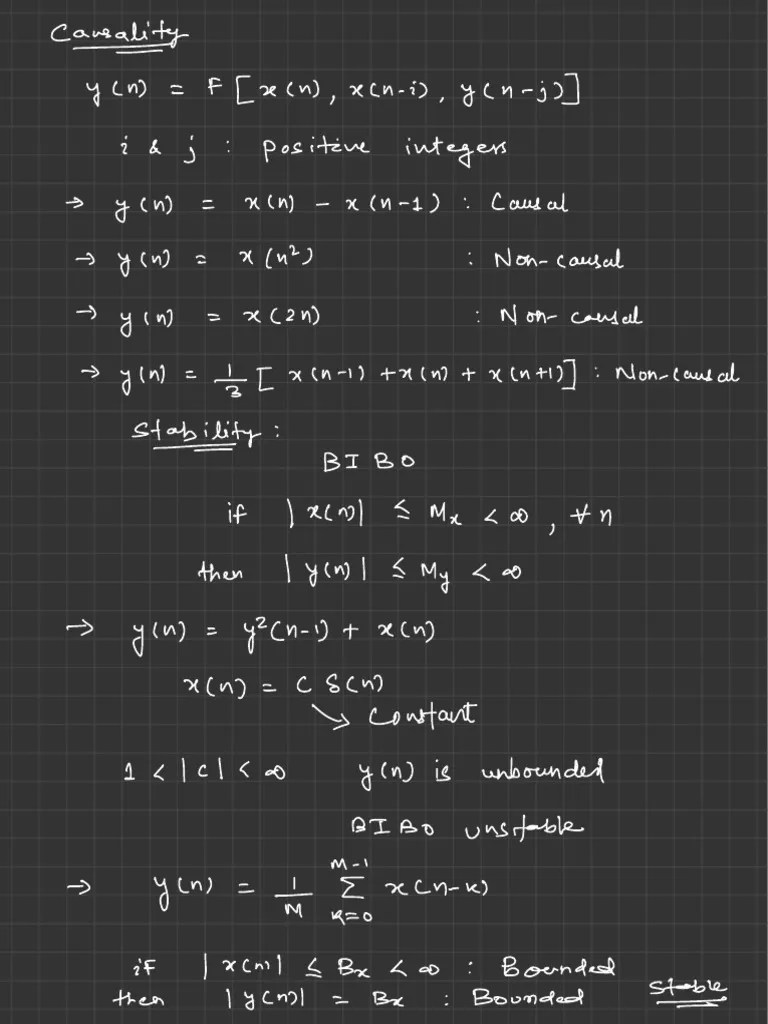 Causality
y(n) = F[x(n), x(n-i), y(n-j)]
i & j : positive integers
→ y(n) = x(n) - x(n-1) : Causal
→ y(n) = x(n²) : Non-causal
→ y(n) = x(2n) : Non-causal
→ y(n) = 1/3 [x(n-1) + x(n) + x(n+1)] : Non-causal
Stability :
BIBO
if |x(n)| ≤ Mx < ∞, ∀ n
then |y(n)| ≤ My < ∞
→ y(n) = y²(n-1) + x(n)
x(n) = C δ(n)
↘ Constant
1 < |c| < ∞ y(n) is unbounded
BIBO unstable
→ y(n) = 1/M ∑_{k=0}^{M-1} x(n-k)
if |x(n)| ≤ Bx < ∞ : Bounded
then |y(n)| = Bx : Bounded Stable